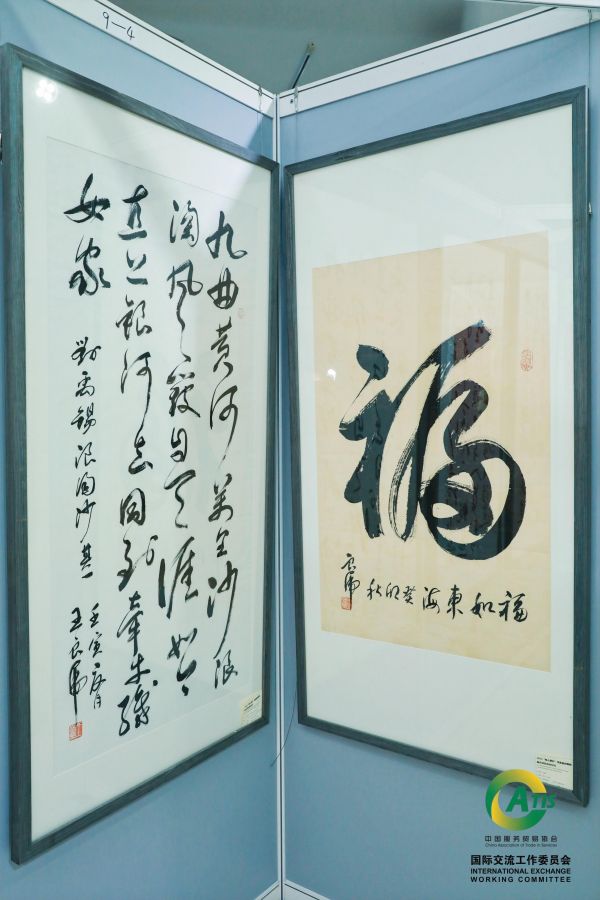 9-4
九曲黄河萬里沙浪
淘風簸自天涯如今
直上銀河去同到牽牛織
女家
劉禹錫浪淘沙其一
壬寅
王良虎
福
福如東海癸卯秋
良虎
CATIS
中国服务贸易协会
China Association of Trade in Services
国际交流工作委员会
INTERNATIONAL EXCHANGE
WORKING COMMITTEE